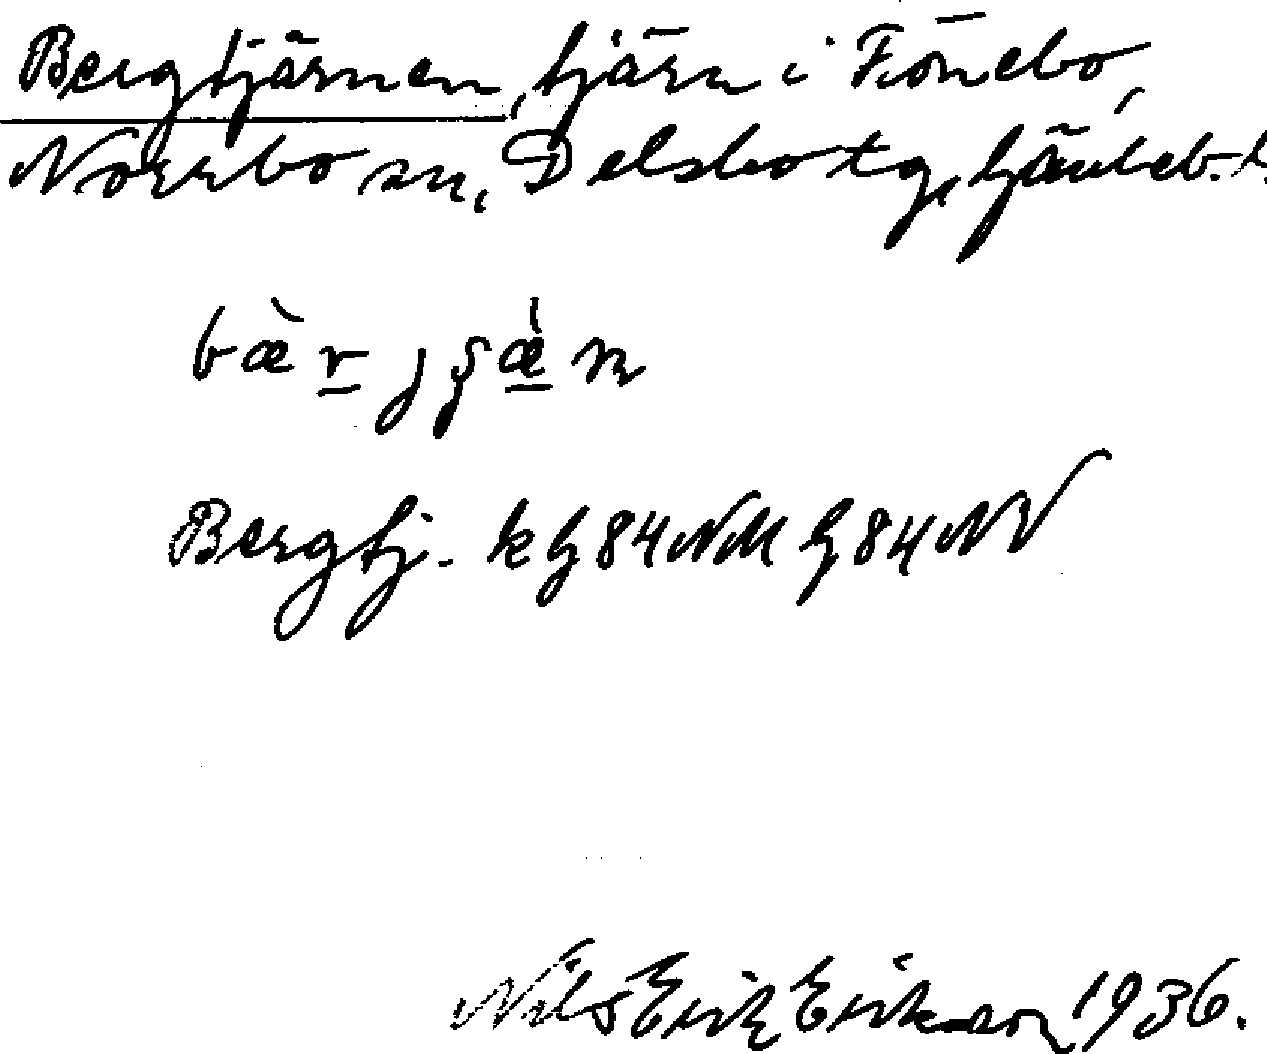 Bergtjärnen, tjärn i Fönebo,
Norrbo sn, Delsbo tg, Gävleb. l.
bæ̀r̲jʂæ̲̀n
Bergtj. kg 84 NM G 84 NV
Nils Erik Eriksson 1936.